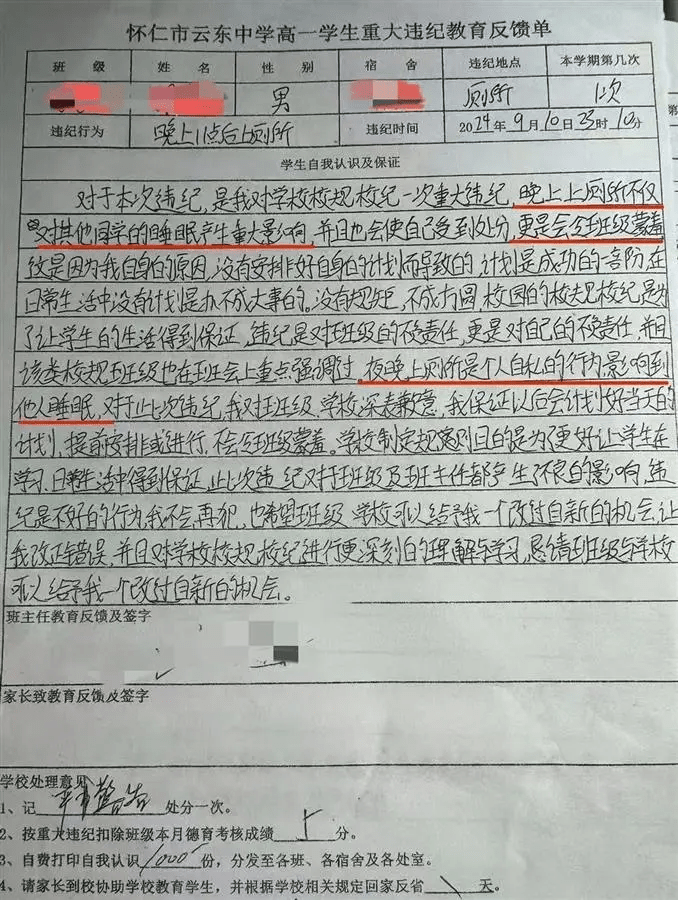 怀仁市云东中学高一学生重大违纪教育反馈单
班 级 姓 名 性 别 宿 舍 违纪地点 本学期第几次
男 厕所 1次
违纪行为 晚上11点后上厕所 违纪时间 2024年9月10日23时10分
学生自我认识及保证
对于本次违纪,是我对学校校规校纪一次重大违纪,晚上上厕所不仅
对其他同学的睡眠产生重大影响,并且也会使自己受到处分,更是会给班级蒙羞
这是因为我自身的原因,没有安排好自身的计划而导致的,计划是成功的一部份,在
日常生活中没有计划是办不成大事的。没有规矩,不成方圆,校园的校规校纪,是为
了让学生的生活得到保证,违纪是对班级的不负责任,更是对自己的不负责任,并且
该类校规班级也在班会上重点强调过,夜晚上厕所是个人自私的行为,影响到
他人睡眠,对于此次违纪,我对班级、学校深表歉意,我保证以后会计划好当天的
计划,提前安排或进行,不会给班级蒙羞。学校制定规则目的是为了更好让学生在
学习、日常生活中得到保证,此次违纪对于班级及班主任都产生了不良的影响,违
纪是不好的行为,我不会再犯,也希望班级、学校可以给予我一个改过自新的机会,让
我改正错误,并且对学校校规、校纪进行更深刻的理解与学习,恳请班级与学校
可以给予我一个改过自新的机会。
班主任教育反馈及签字
家长致教育反馈及签字
学校处理意见
1、记 严重警告 处分一次。
2、按重大违纪扣除班级本月德育考核成绩 分。
3、自费打印自我认识 1000 份,分发至各班、各宿舍及各处室。
4、请家长到校协助学校教育学生,并根据学校相关规定回家反省 \ 天。